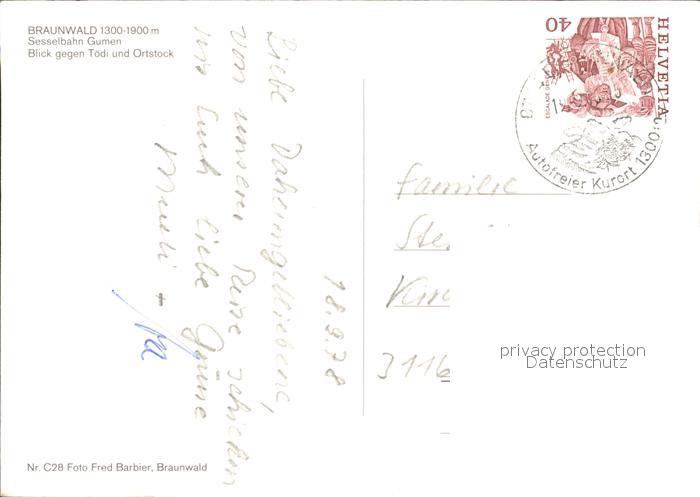 BRAUNWALD 1300-1900 m
Sesselbahn Gumen
Blick gegen Tödi und Ortstock
18.9.78
Liebe Daheimgebliebene,
von unserer Reise schicken
wir Euch liebe Grüsse
Mueti +
HELVETIA
40
Autofreier Kurort 1300
Familie
Ste
3116
privacy protection
Datenschutz
Nr. C28 Foto Fred Barbier, Braunwald